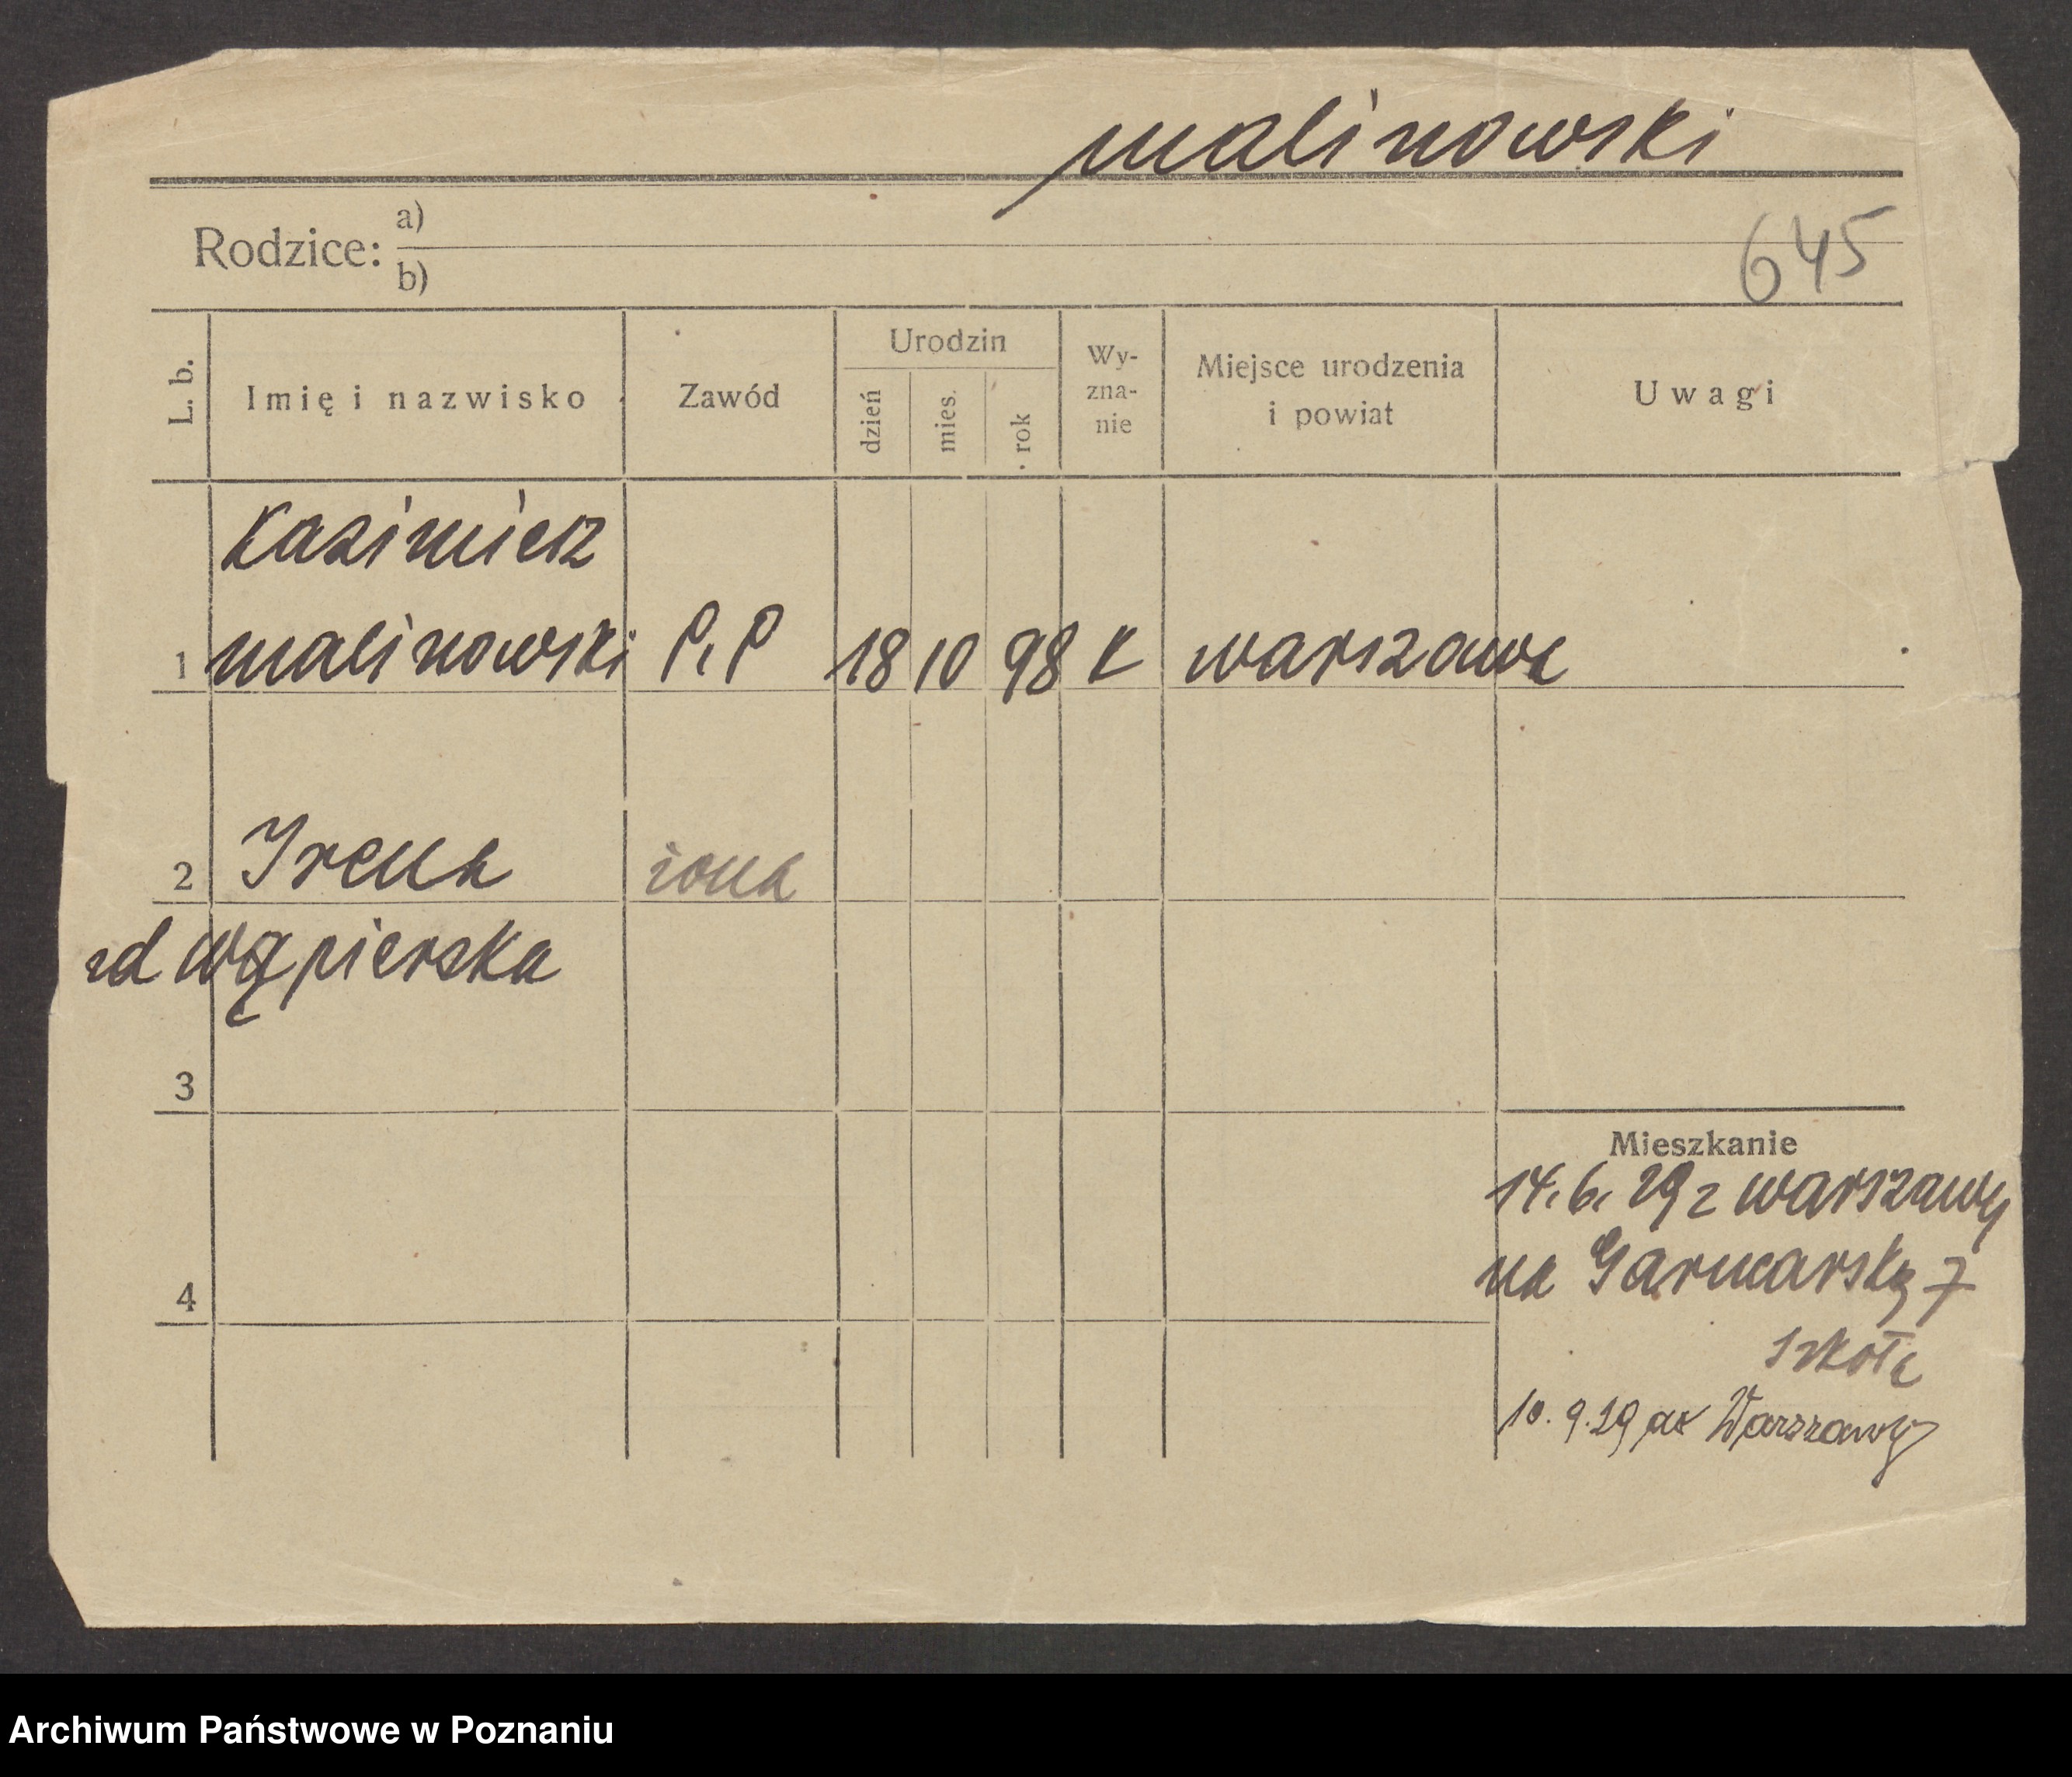 malinowski
Rodzice: a)
b)
645
L. b.
Imię i nazwisko
Zawód
Urodzin
dzień
mies.
rok
Wy-
zna-
nie
Miejsce urodzenia
i powiat
Uwagi
Kazimierz
1 malinowski P. P 18 10 98 K warszawa
2 Irena żona
zd wąpierska
3
4
Mieszkanie
14. 6. 29 z warszawy
na Garncarską 7
szkoła
10. 9. 29 do Warszawy
Archiwum Państwowe w Poznaniu